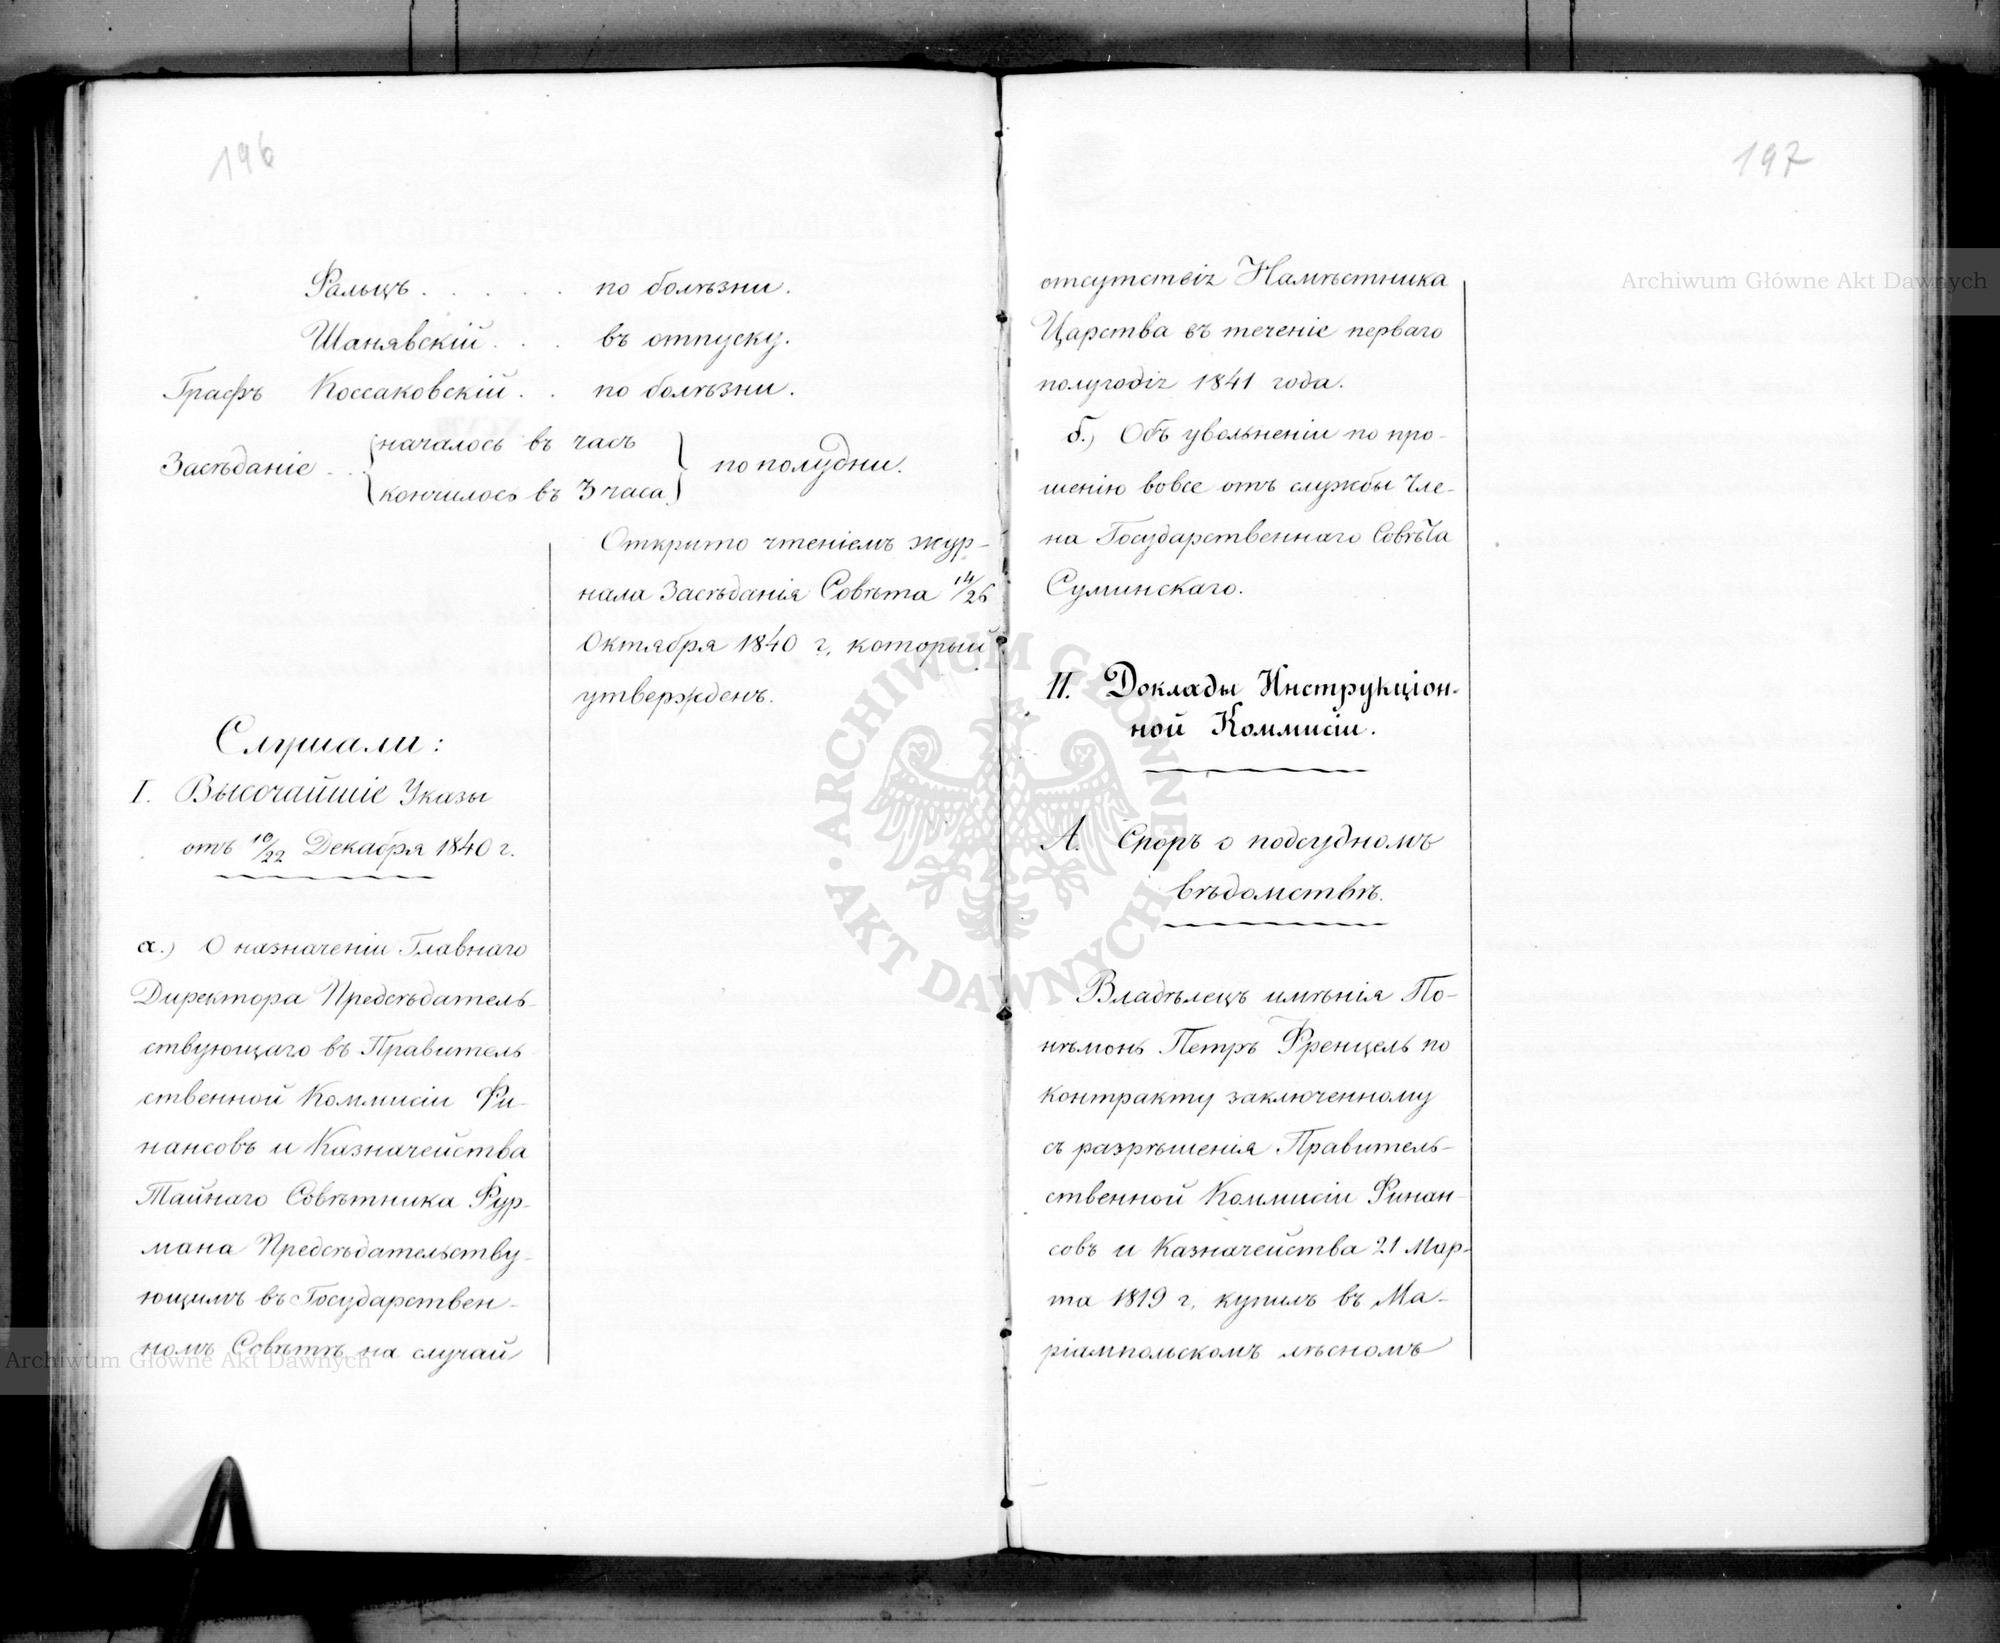 196
Фальцъ . . . . . по болѣзни.
Шанявскій . . . въ отпуску.
Графъ Коссаковскій . . по болѣзни.
Засѣданіе . . началось въ часъ
кончилось въ 3 часа
по полудни.
Открыто чтеніемъ жур-
нала Засѣданія Совѣта 14/26
Октября 1840 г, который
утвержденъ.
Слушали:
I. Высочайшіе Указы
отъ 10/22 Декабря 1840 г.
а.) О назначеніи Главнаго
Директора Предсѣдатель-
ствующаго въ Правитель-
ственной Коммисіи Фи-
нансовъ и Казначейства
Тайнаго Совѣтника Фур-
мана Предсѣдательству-
ющимъ въ Государствен-
номъ Совѣтѣ на случай
197
отсутствія Намѣстника
Царства въ теченіе перваго
полугодія 1841 года.
б.) Объ увольненіи по про-
шенію вовсе отъ службы Чле-
на Государственнаго Совѣта
Суминскаго.
II. Доклады Инструкціон-
ной Коммисіи.
А. Споръ о подсудномъ
вѣдомствѣ.
Владѣлецъ имѣнія По-
нѣмонь Петръ Френцель по
контракту заключенному
съ разрѣшенія Правитель-
ственной Коммисіи Финан-
совъ и Казначейства 21 Мар-
та 1819 г, купилъ въ Ма-
ріампольскомъ лѣсномъ
Archiwum Główne Akt Dawnych
Archiwum Główne Akt Dawnych
ARCHIWUM GŁÓWNE · AKT DAWNYCH ·